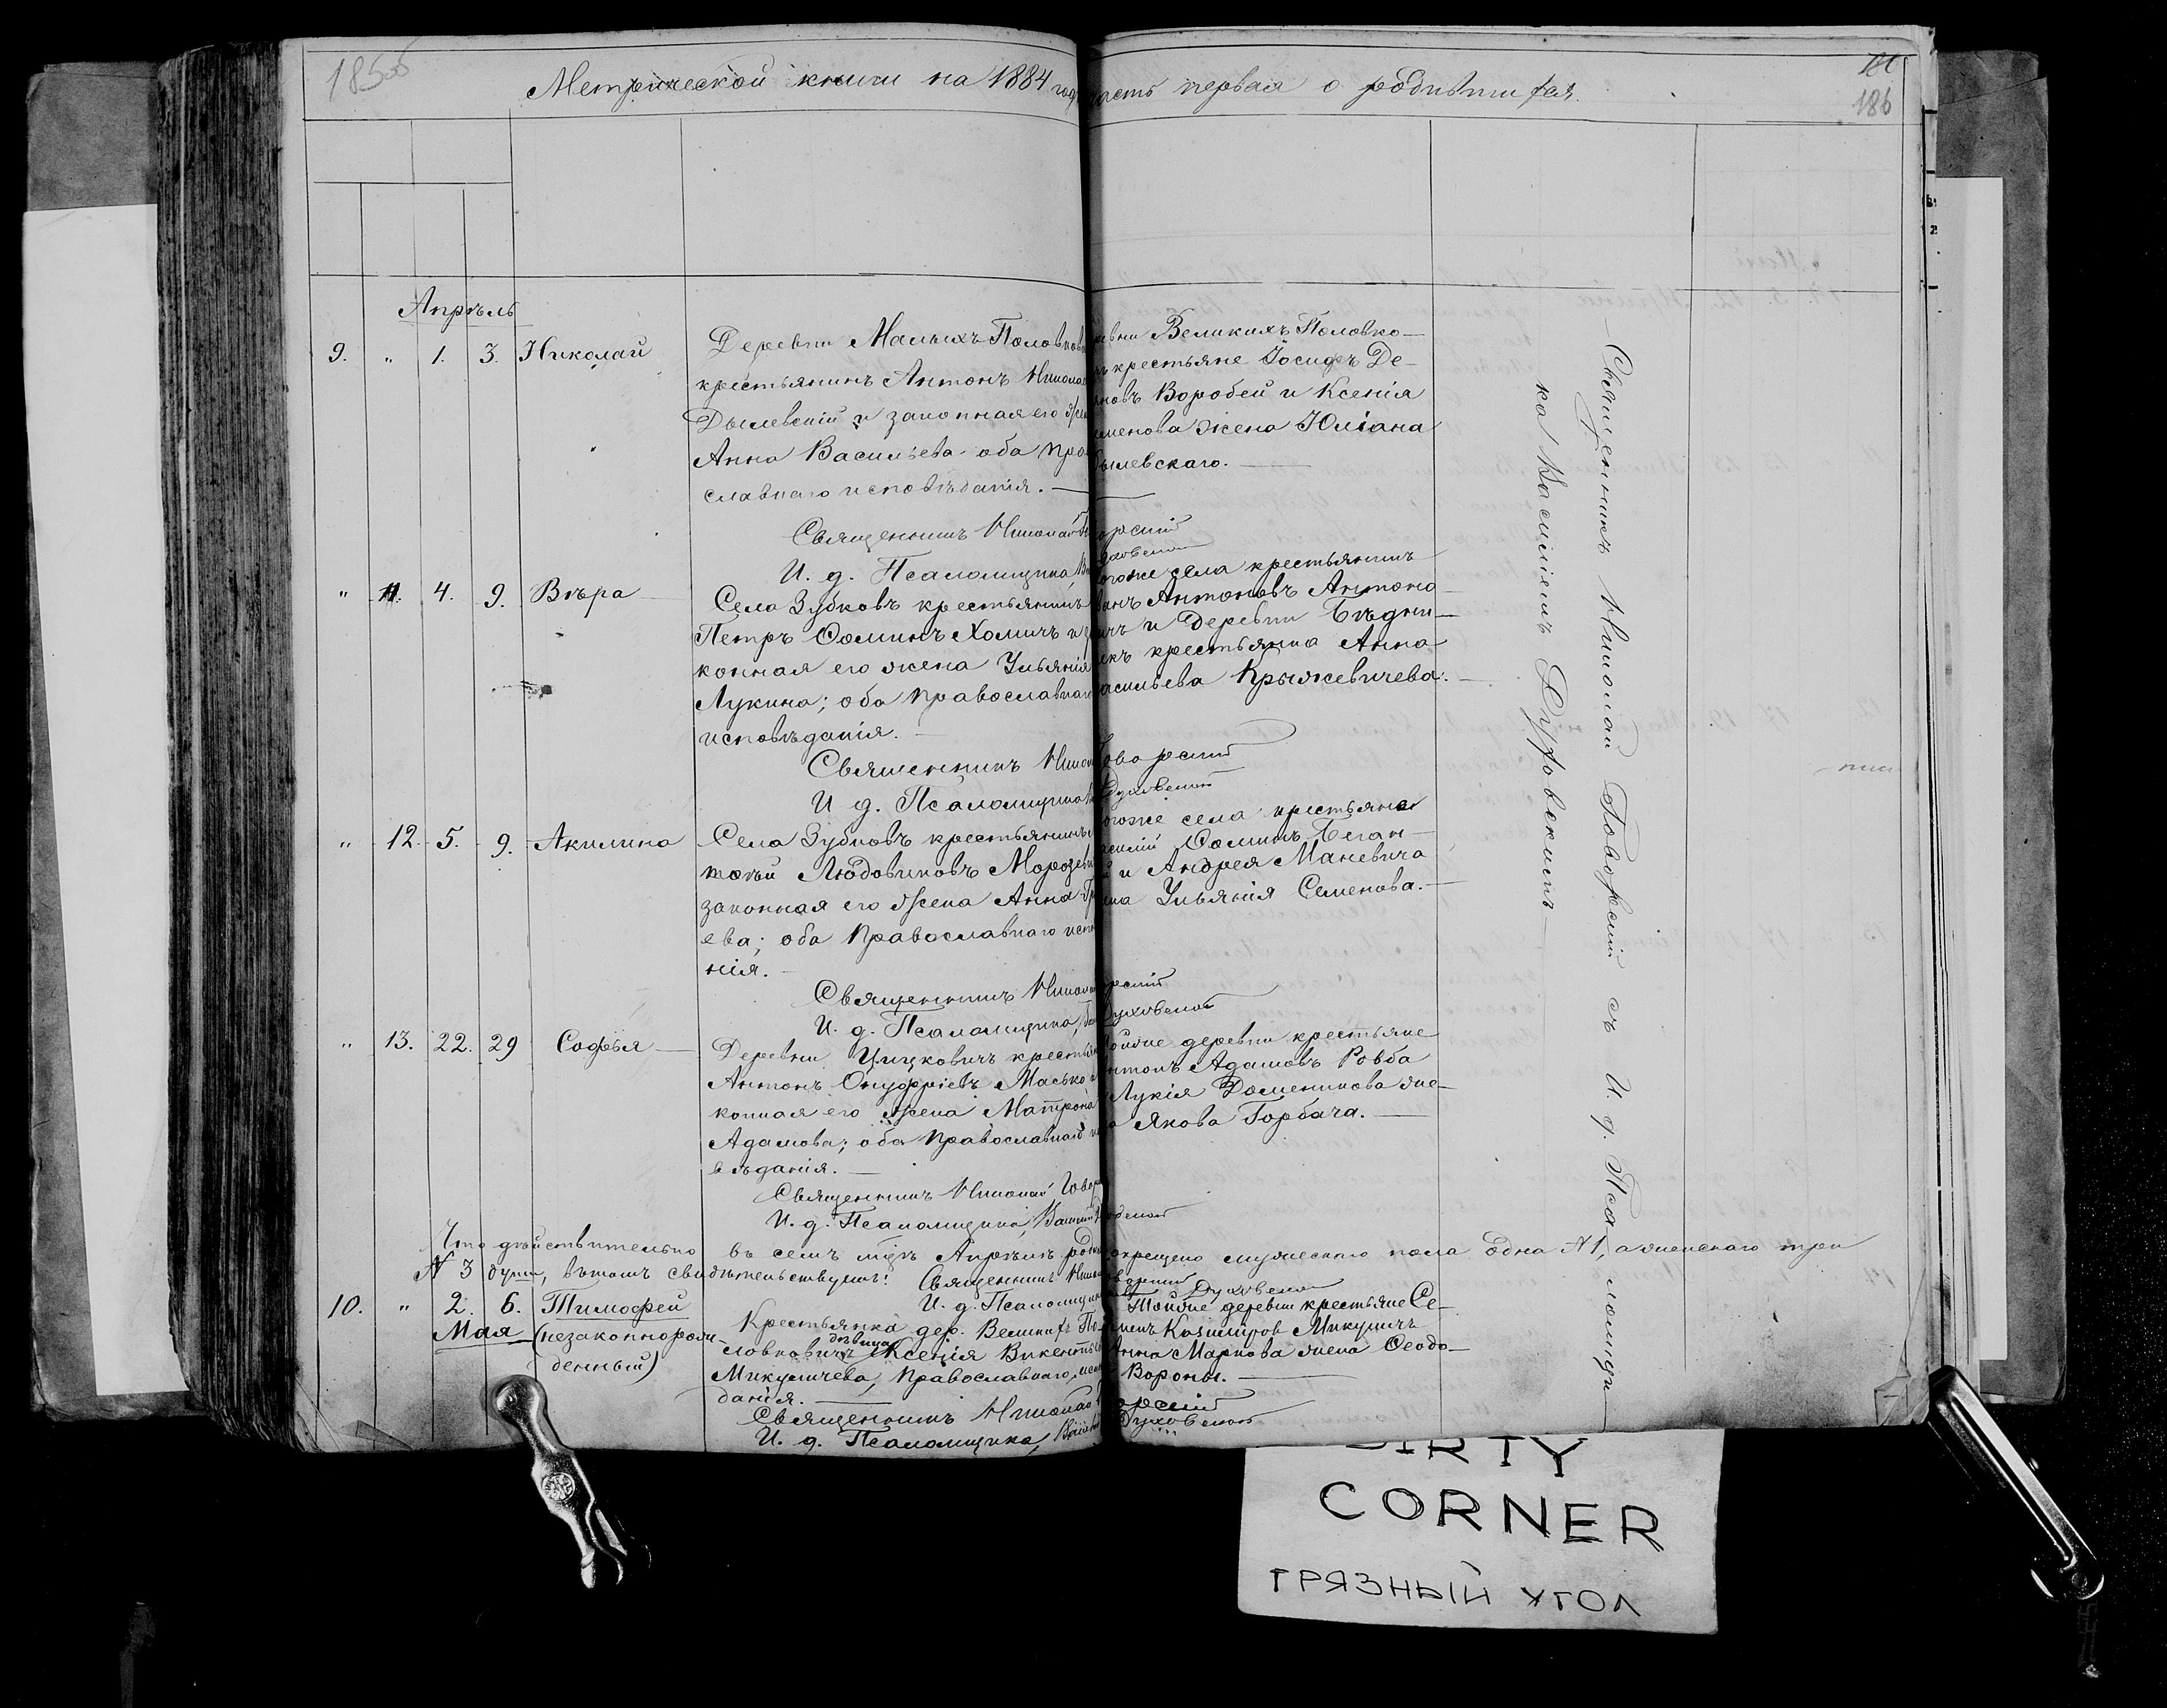 185об
186
Метрической книги на 1884 год часть первая о родившихся.
Апрѣль
9. " 1. 3. Николай
Деревни Малыхъ Половкович
крестьянинъ Антонъ Никола
Дылевскій и законная его же
Анна Васильева оба пра
славнаго исповѣданія.
евни Великихъ Половко-
ъ крестьяне Іосифъ Де-
новъ Воробей и Ксенія
именова жена Юліана
ылевскаго.
Священникъ Николай Говорскій
И. д. Псаломщика, Духовскій
" 11. 4. 9. Вѣра
Села Зубковъ крестьянинъ
Петръ Ѳоминъ Хомичъ и за
конная его жена Ульянія
Лукина; оба православнаго
исповѣданія.
огоже села крестьянинъ
ванъ Антоновъ Антоно
ичъ и деревни Бѣдни-
екъ крестьянка Анна
асильева Крыжевичева.
Священникъ Никол Говорскій
И д. Псаломщика Духовскій
" 12. 5. 9. Акилина
Села Зубковъ крестьянинъ
Людовиковъ Морозеви
законная его жена Анна Гр
ева; оба православнаго испо
нія.
огоже села крестьяне
асилій Ѳоминъ Беган-
и Андрея Маневича
ена Ульянія Семенова.
Священникъ Никола рскій
И. д. Псаломщика, Духовскій
" 13. 22. 29 Софья
Деревни Цицковичъ крестьян
Антонъ Онуфріевъ Масько и
конная его жена Матрона
Адамова; оба православнаго ис
вѣданія.
ойже деревни крестьяне
нтонъ Адамовъ Ровба
Лукія Доменикова же-
а Якова Горбача.
Священникъ Николай Говор
И. д. Псаломщика, Василій Духовскій
Что дѣйствительно въ семъ м-цѣ Апрѣлѣ роди окрещено мужескаго пола одна №1, а женскаго три
№ 3 души, въ томъ свидѣтельствуемъ: Священникъ Никол Говорскій
И. д. Псаломщика Духовскій
10. " 2. 6. Тимофей
Мая (незаконнорож-
денный)
Крестьянка дер. Великихъ По
ловковичъ дѣвица Ксенія Викентье
Микуличева, православнаго испо
данія.
Тойже деревни крестьяне Се-
менъ Казиміров Микуличъ
Анна Маркова жена Ѳеодо-
Вороны.
Священникъ Николай Говорскій
И. д. Псаломщика, Василій Духовскій
Священникъ Николай Говорскій съ И. д. Псаломщи
ка Василіемъ Духовскимъ
DIRTY
CORNER
ГРЯЗНЫЙ УГОЛ